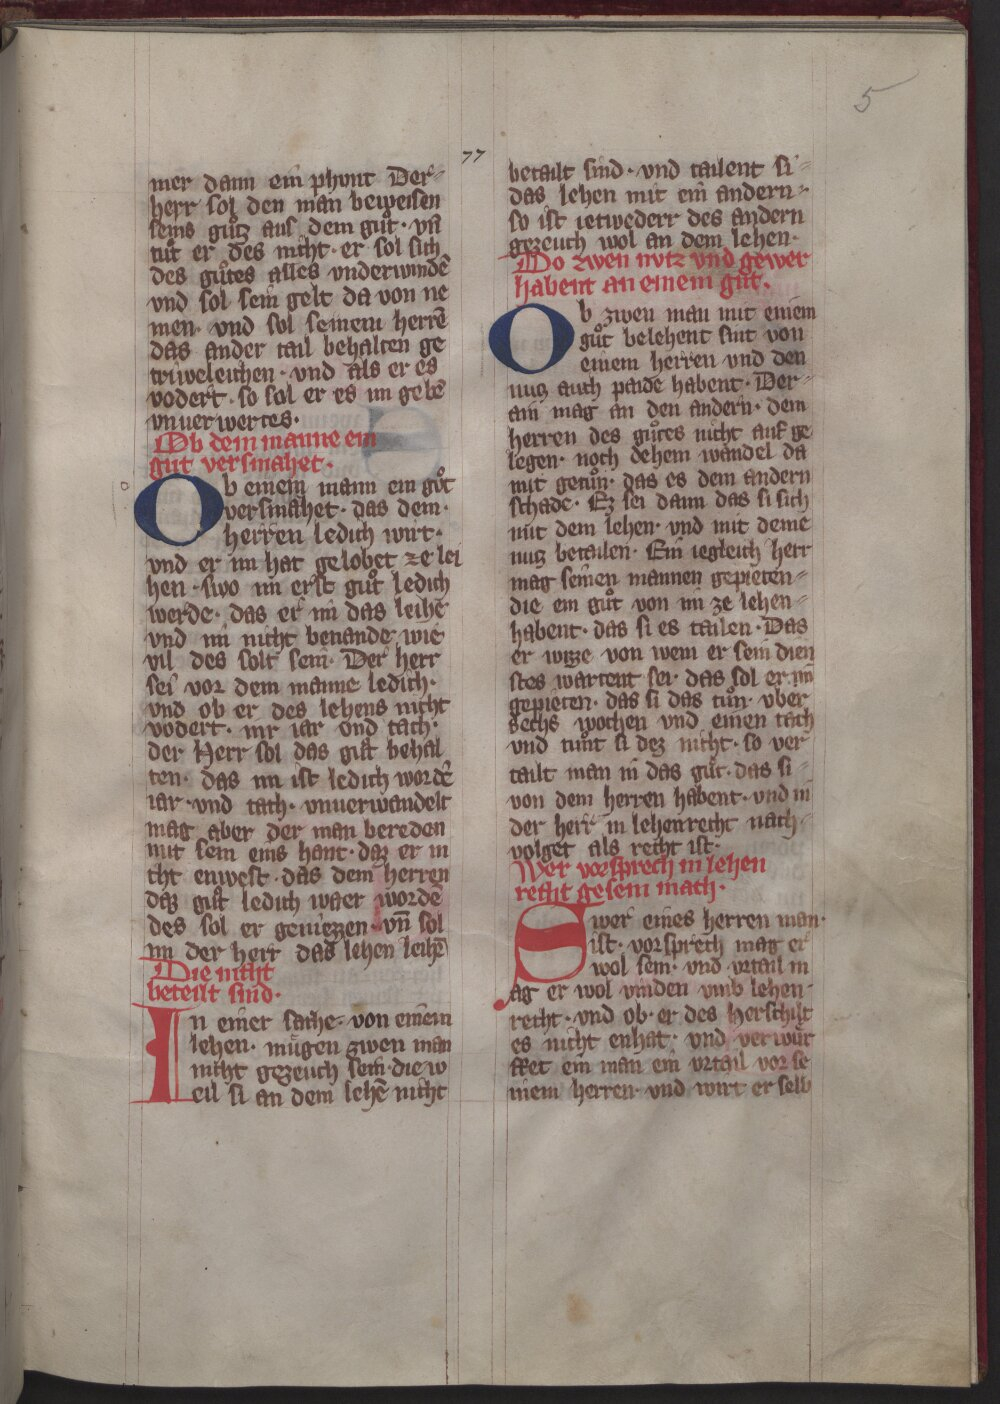 5
77
mer dann ein phunt Der
herr sol den man beweisen
seins gůtz aus dem gůt · vn̄
tůt er des nicht · er sol sich
des gůtes alles vnderwindē
vnd sol sein gelt da von ne
men · vnd sol seinem herrē
das ander tail behalten ge
triweleichen · vnd als er es
vodert · so sol er es im gebē
vnuerwertes ·
Ob dem manne ein
gut versmahet ·
Ob einem mann ein gůt
versmahet · das dem
herren ledich wirt ·
vnd er im hat gelobet ze lei
hen · swo im erst gůt ledich
werde · das er im das leihē
vnd im nicht benande wie
vil des solt sein · Der herr
sei vor dem manne ledich ·
vnd ob er des lehens nicht
vodert · inr iar vnd tach ·
der Herr sol das gůt behal
ten · das im ist ledich wordē
iar · vnd tach · vnuerwandelt
mag aber der man bereden
mit sein eins hant · daz er ni
cht enwest · das dem herren
daz gůt ledich waer wordē
des sol er geniezzen · vn̄ sol
im der herr das lehen leihē
Die nicht
beteilt sind ·
In einer sache · von einem
lehen · mügen zwen man
nicht gezeuch sein · die w
eil si an dem lehē nicht
betailt sind · vnd tailent si
das lehen mit ein andern ·
so ist ietwederr des andern
gezeuch wol an dem lehen ·
Do zwen nvtz vnd gewer
habent an einem gůt ·
Ob zwen man mit einem
gůt belehent sint von
einem herren vnd den
nutz auch paide habent · Der
ain mag an den andern · dem
herren des gůtes nicht auf ge
legen · noch dehein wandel da
mit getůn · das es dem andern
schade · Ez sei dann das si sich
mit dem lehen · vnd mit deme
nutz betailen · Ein iegleich herr
mag seinen mannen gepieten
die ein gůt von im ze lehen
habent · das si es tailen · Das
er wizze von wem er sein dien
stes wartent sei · das sol er im
gepieten · das si das tůn · vber
sechs wochen vnd einen tach
vnd tůnt si dez nicht · so ver
tailt man in das gůt · das si
von dem herren habent · vnd in
der herr in lehenrecht nach
volget als recht ist ·
Wer vorsprech in lehen
recht gesein mach ·
Swer eines herren man ·
ist · vorsprech mag er
wol sein · vnd vrtail m
ag er wol vinden vmb lehen
recht · vnd ob · er des herschilt
es nicht enhat · vnd verwür
ffet ein man ein vrtail vor se
inem herren · vnd wirt er selb